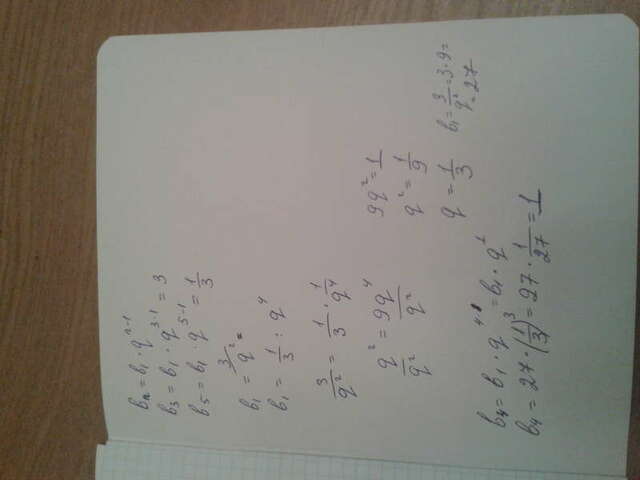 bₙ = b₁ · qⁿ⁻¹
b₃ = b₁ · q³⁻¹ = 3
b₅ = b₁ q⁵⁻¹ = 1/3
b₁ = 3/q² =
b₁ = 1/3 : q⁴
3/q² = 1/3 · 1/q⁴
q²/q² = 9q⁴/q²
9q² = 1
q² = 1/9
q = 1/3
b₁ = 3/q² = 3·9 =
= 27
b₄ = b₁ · q⁴⁻¹ = b₁ · q³
b₄ = 27 · (1/3)³ = 27 · 1/27 = 1